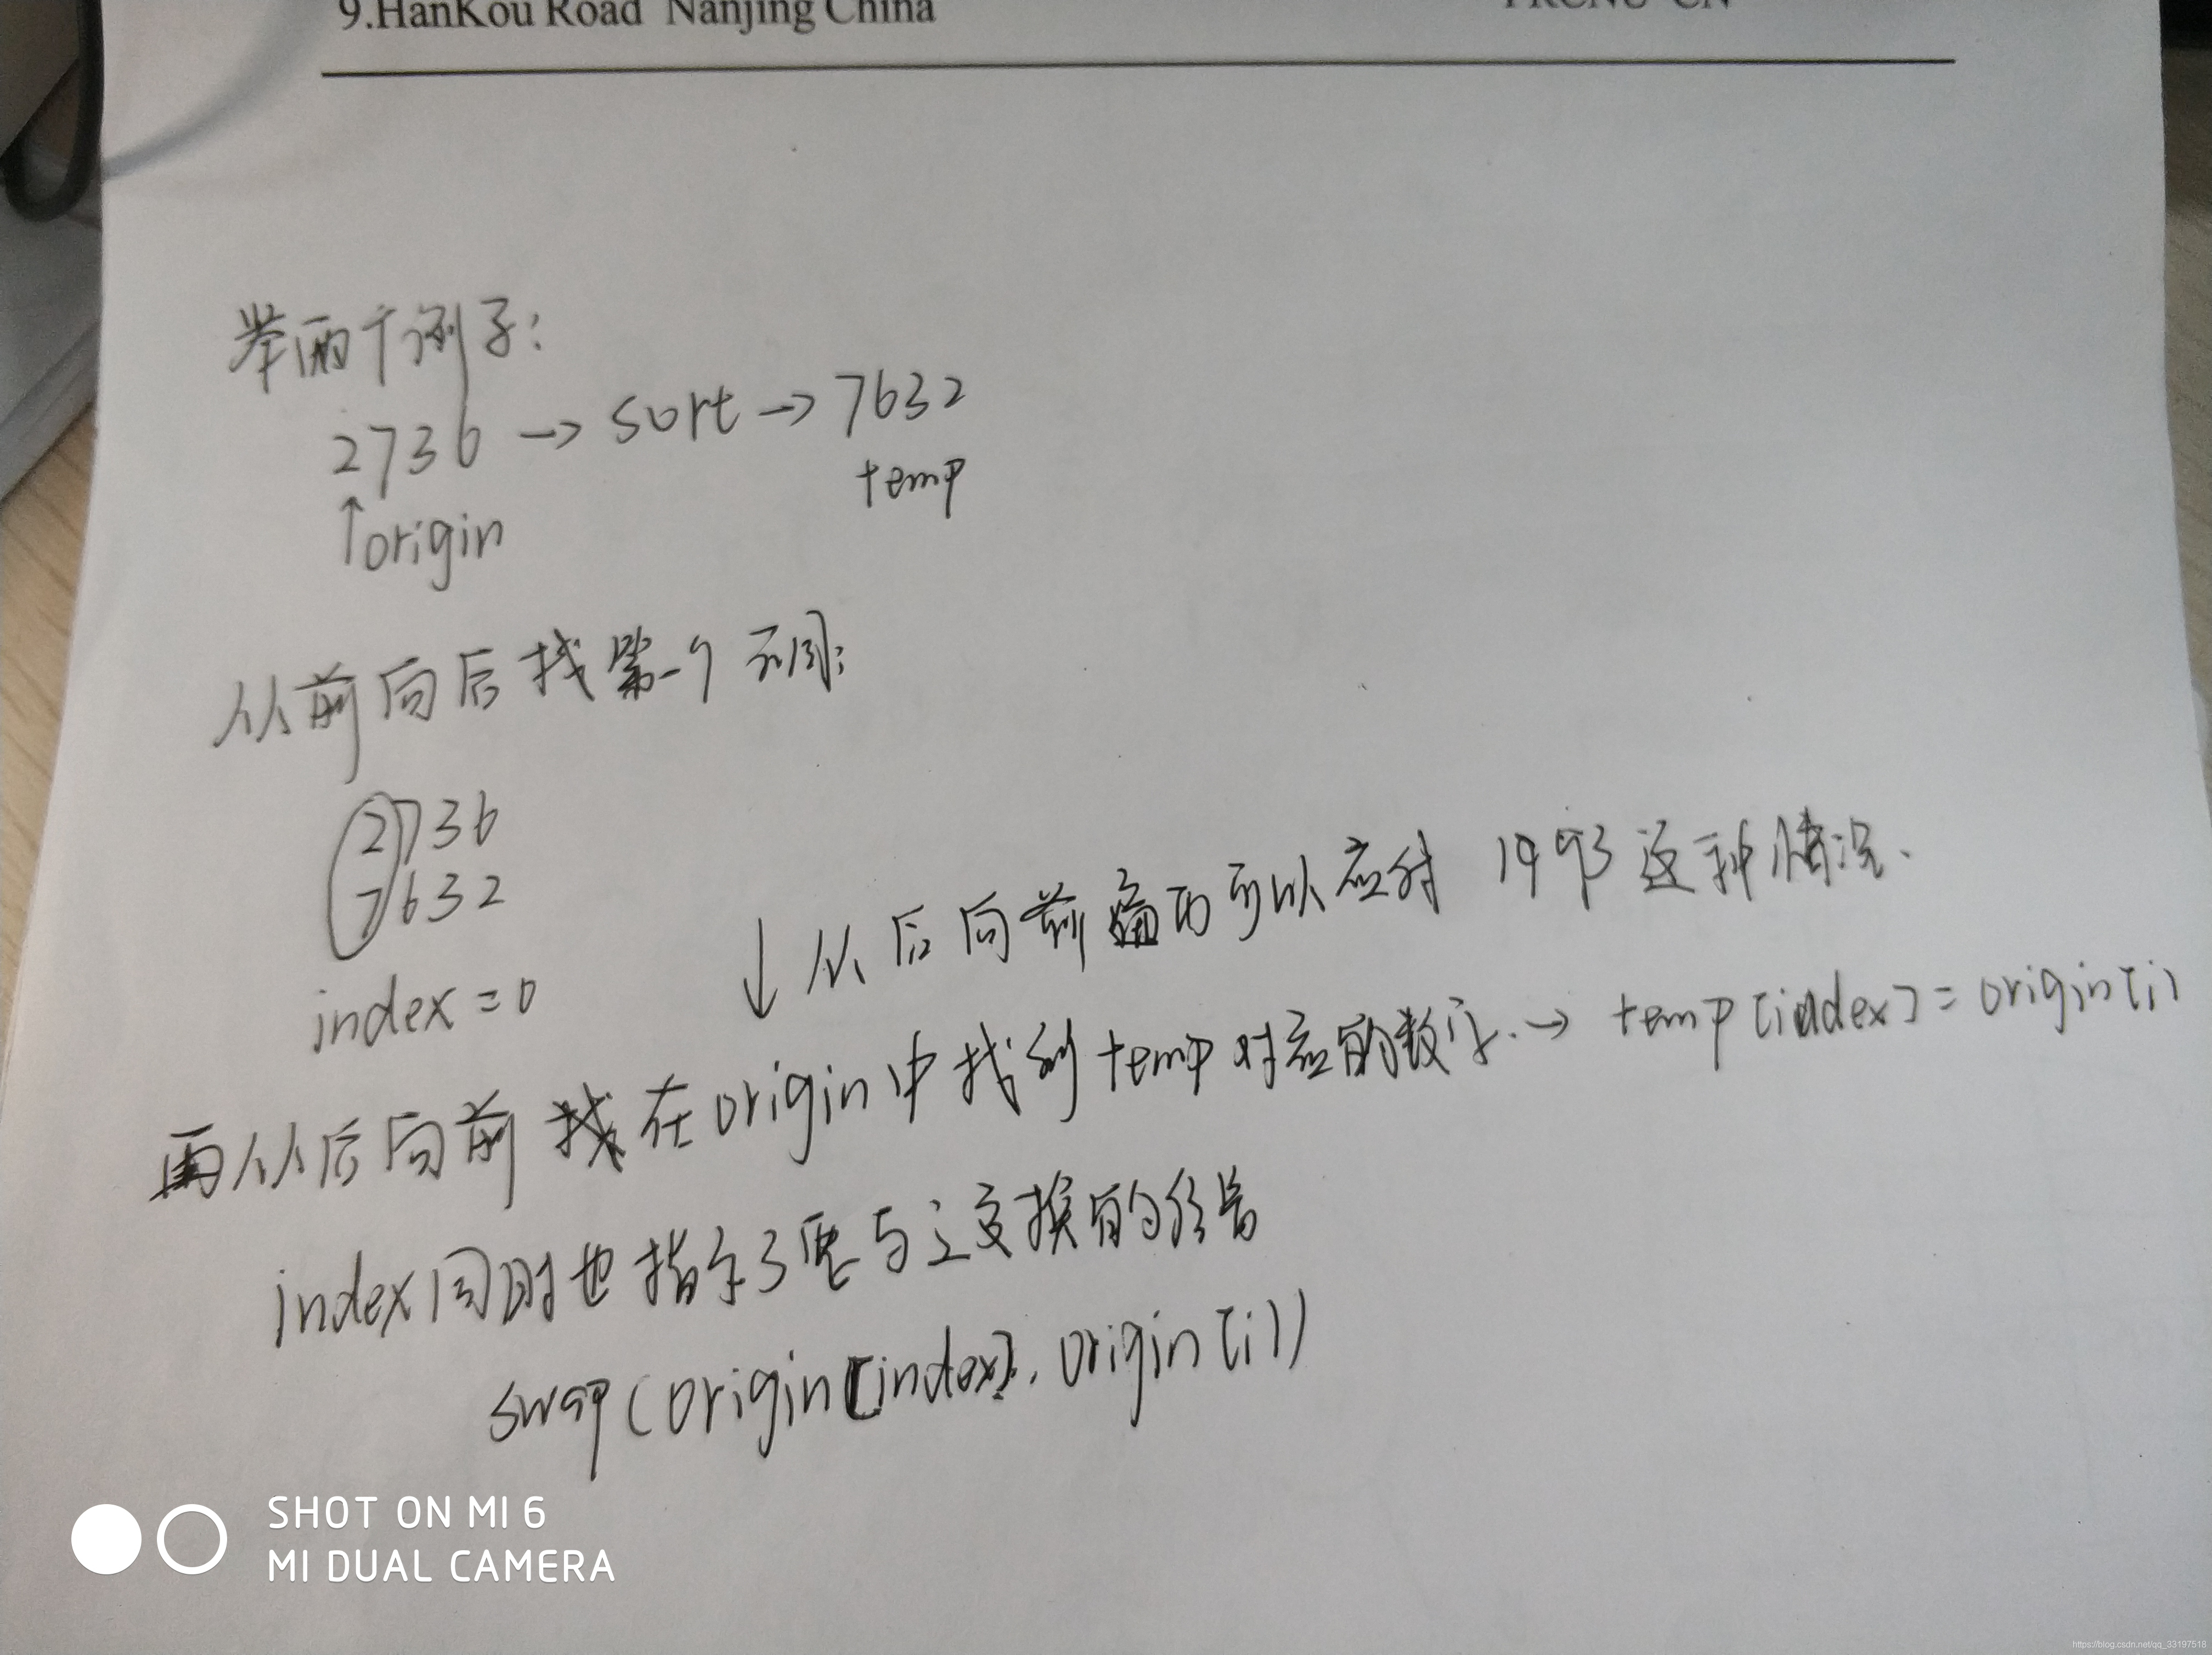 9.HanKou Road Nanjing China
举两个例子:
2736 → sort → 7632
temp
↑origin
从前向后找第一个不同:
2736
7632
index = 0
↓ 从后向前遍历可以应对 1993 这种情况.
再从后向前 找 在origin中找到temp对应的数字. → temp[index] = origin[i]
index同时也指示了要与之交换的位置
swap(origin[index], origin[i])
SHOT ON MI 6
MI DUAL CAMERA
https://blog.csdn.net/qq_33197518